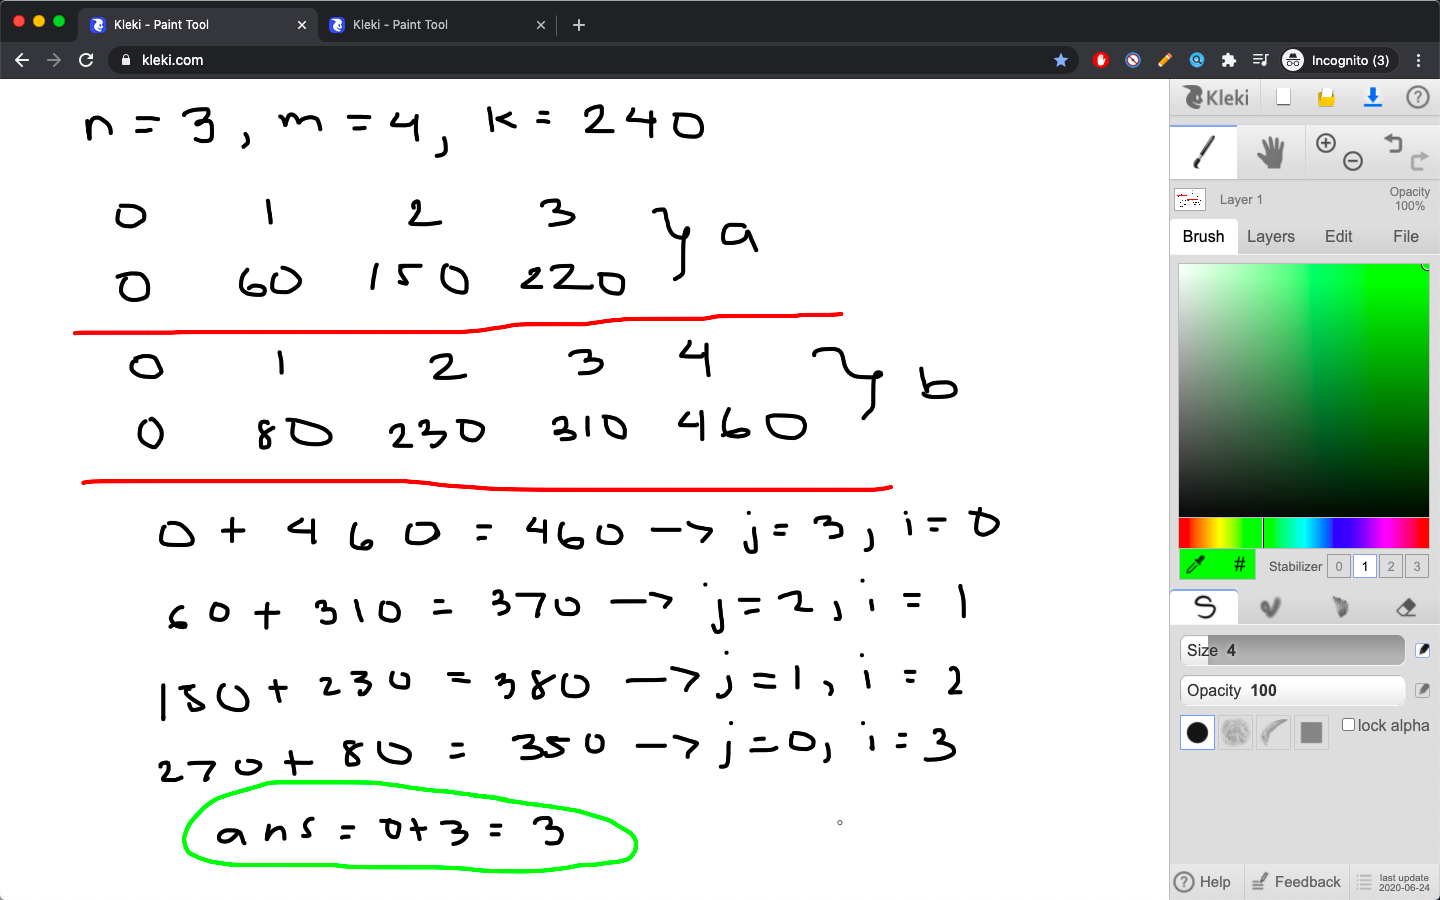 Kleki - Paint Tool
Kleki - Paint Tool
kleki.com
Incognito (3)
n = 3, m = 4, k = 240
0 1 2 3
0 60 150 220
a
0 1 2 3 4
0 80 230 310 460
b
0 + 460 = 460 → j = 3, i = 0
60 + 310 = 370 → j = 2, i = 1
150 + 230 = 380 → j = 1, i = 2
270 + 80 = 350 → j = 0, i = 3
ans = 0 + 3 = 3
Kleki
Layer 1
Opacity
100%
Brush Layers Edit File
# Stabilizer 0 1 2 3
Size 4
Opacity 100
lock alpha
Help Feedback last update
2020-06-24